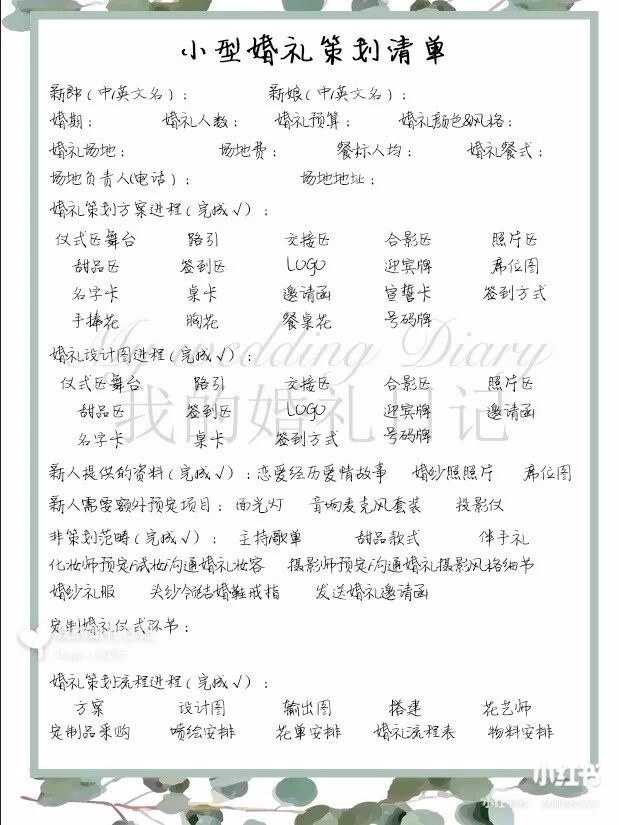 小型婚礼策划清单
新郎(中/英文名): 新娘(中/英文名):
婚期: 婚礼人数: 婚礼预算: 婚礼颜色&风格:
婚礼场地: 场地费: 餐标人均: 婚礼餐式:
场地负责人(电话): 场地地址:
婚礼策划方案进程(完成√):
仪式区舞台 路引 交接区 合影区 照片区
甜品区 签到区 LOGO 迎宾牌 席位图
名字卡 桌卡 邀请函 宣誓卡 签到方式
手捧花 胸花 餐桌花 号码牌
My wedding Diary
婚礼设计图进程(完成√):
仪式区舞台 路引 交接区 合影区 照片区
甜品区 签到区 LOGO 迎宾牌 邀请函
我的婚礼日记
名字卡 桌卡 签到方式 号码牌
新人提供的资料(完成√):恋爱经历/爱情故事 婚纱照照片 席位图
新人需要额外预定项目: 面光灯 音响麦克风套装 投影仪
非策划范畴(完成√): 主持/歌单 甜品款式 伴手礼
化妆师预定/试妆/沟通婚礼妆容 摄影师预定/沟通婚礼摄影风格细节
婚纱礼服 头纱 婚鞋戒指 发送婚礼邀请函
定制婚礼仪式环节:
婚礼策划流程进程(完成√):
方案 设计图 输出图 搭建 花艺师
定制品采购 喷绘安排 花单安排 婚礼流程表 物料安排
小红书